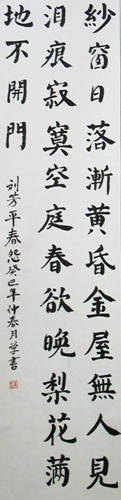 紗窗日落漸黃昏金屋無人見
泪痕寂寞空庭春欲晚梨花滿
地不開門
刘芳平春怨癸巳年仲春月学書